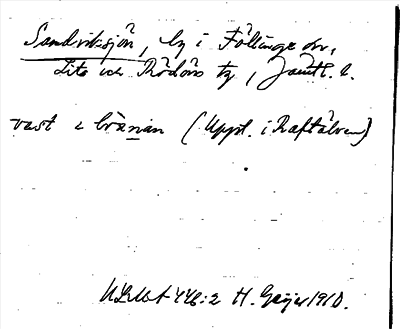 Sandviksjön, by i Föllinge sn,
Lits och Rödöns tg, Jämtl. l.
vast i bränan (Uppt. i Raftälven)
ULMA 446:2 H. Geijer 1910.